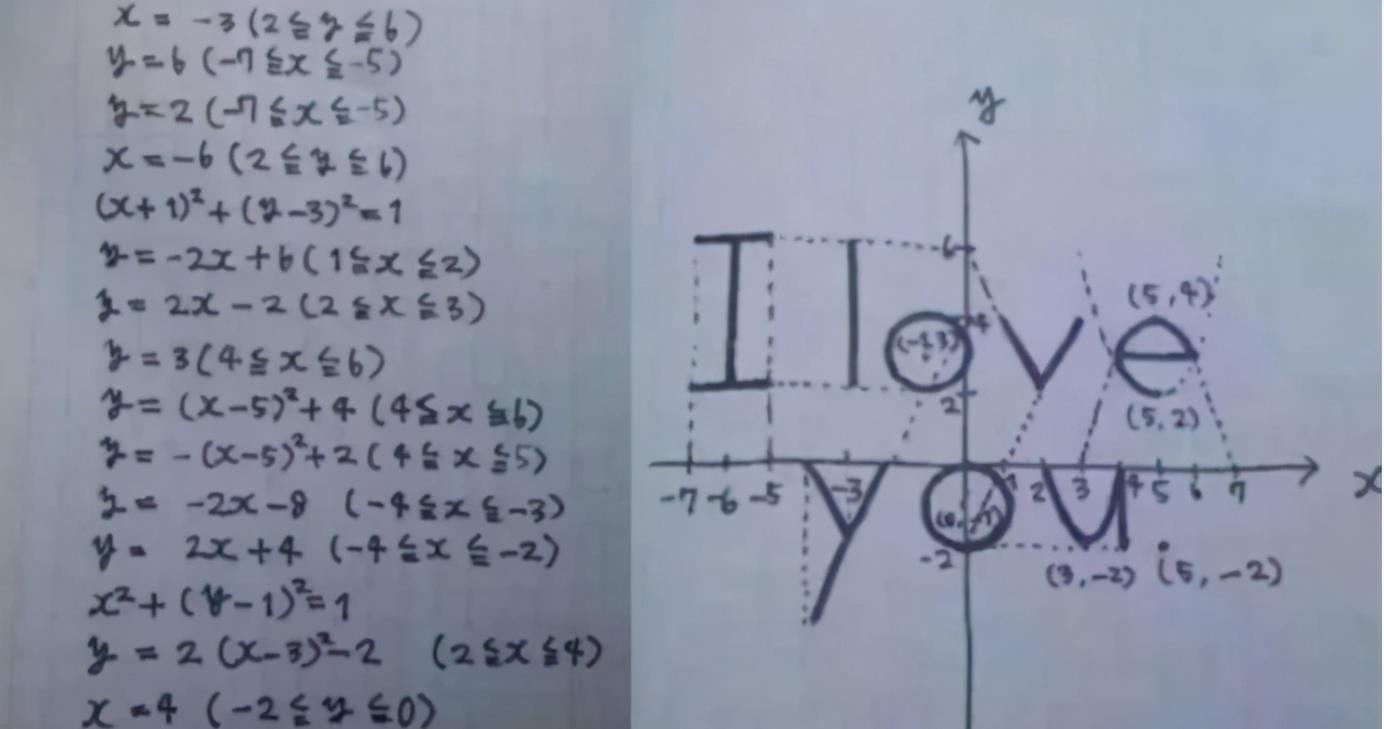 x = -3 (2 ≦ y ≦ 6)
y = 6 (-7 ≦ x ≦ -5)
y = 2 (-7 ≦ x ≦ -5)
x = -6 (2 ≦ y ≦ 6)
(x+1)² + (y-3)² = 1
y = -2x + 6 (1 ≦ x ≦ 2)
y = 2x - 2 (2 ≦ x ≦ 3)
y = 3 (4 ≦ x ≦ 6)
y = (x-5)² + 4 (4 ≦ x ≦ 6)
y = -(x-5)² + 2 (4 ≦ x ≦ 5)
y = -2x - 8 (-4 ≦ x ≦ -3)
y = 2x + 4 (-4 ≦ x ≦ -2)
x² + (y-1)² = 1
y = 2(x-3)² - 2 (2 ≦ x ≦ 4)
x = 4 (-2 ≦ y ≦ 0)
y
6
I l o v e
(5, 4)
4
(-1, 3)
2
(5, 2)
-7 -6 -5 -3 1 2 3 4 5 6 7 x
y o u
(0, -1)
-2
(3, -2) (5, -2)